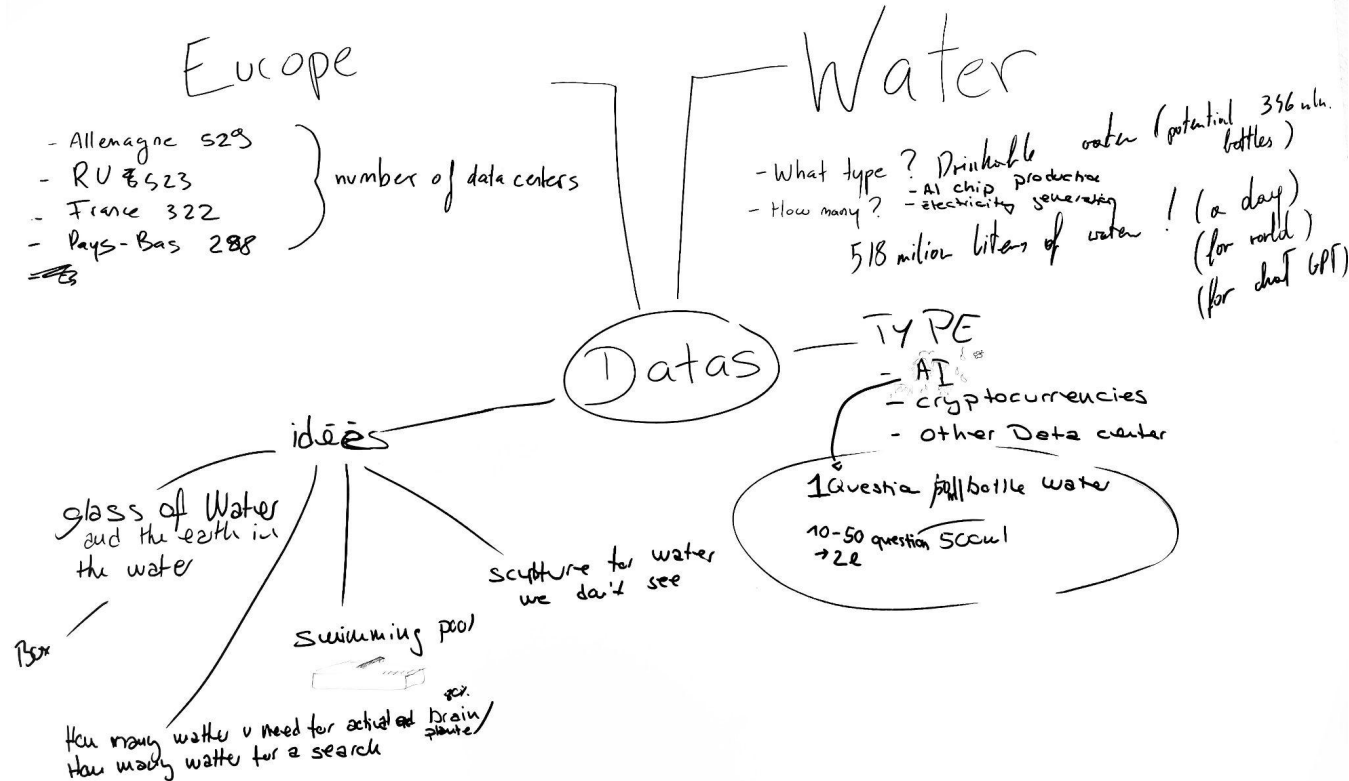 Europe
- Allemagne 529
- RU 523
- France 322
- Pays-Bas 288
number of data centers
Water
- What type ? Drinkable water (potential 346 mln. bottles)
- AI chip production
- électricity generation
- How many ?
518 milion liters of water ! (a day)
(for world)
(for chat GPT)
Datas
TYPE
- AI
- cryptocurrencies
- other Data center
1 Questio bottle water
10-50 question 500ml
→ 2l
idéés
glass of Water
and the earth in
the water
Box
swimming pool
sculpture for water
we don't see
How many watter u need for brain/
How many watter for a search